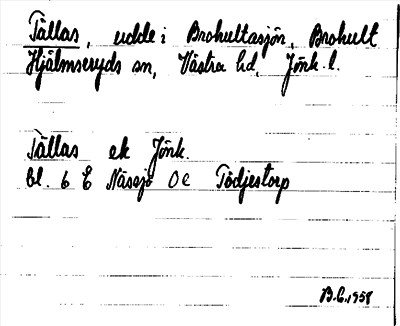 Tällas, udde i Brohultasjön, Brohult
Hjälmseryds sn, Västra hd, Jönk. l.
Tällas ek Jönk.
bl. 6 E Nässjö Oe Tödjestorp
B.E. 1958